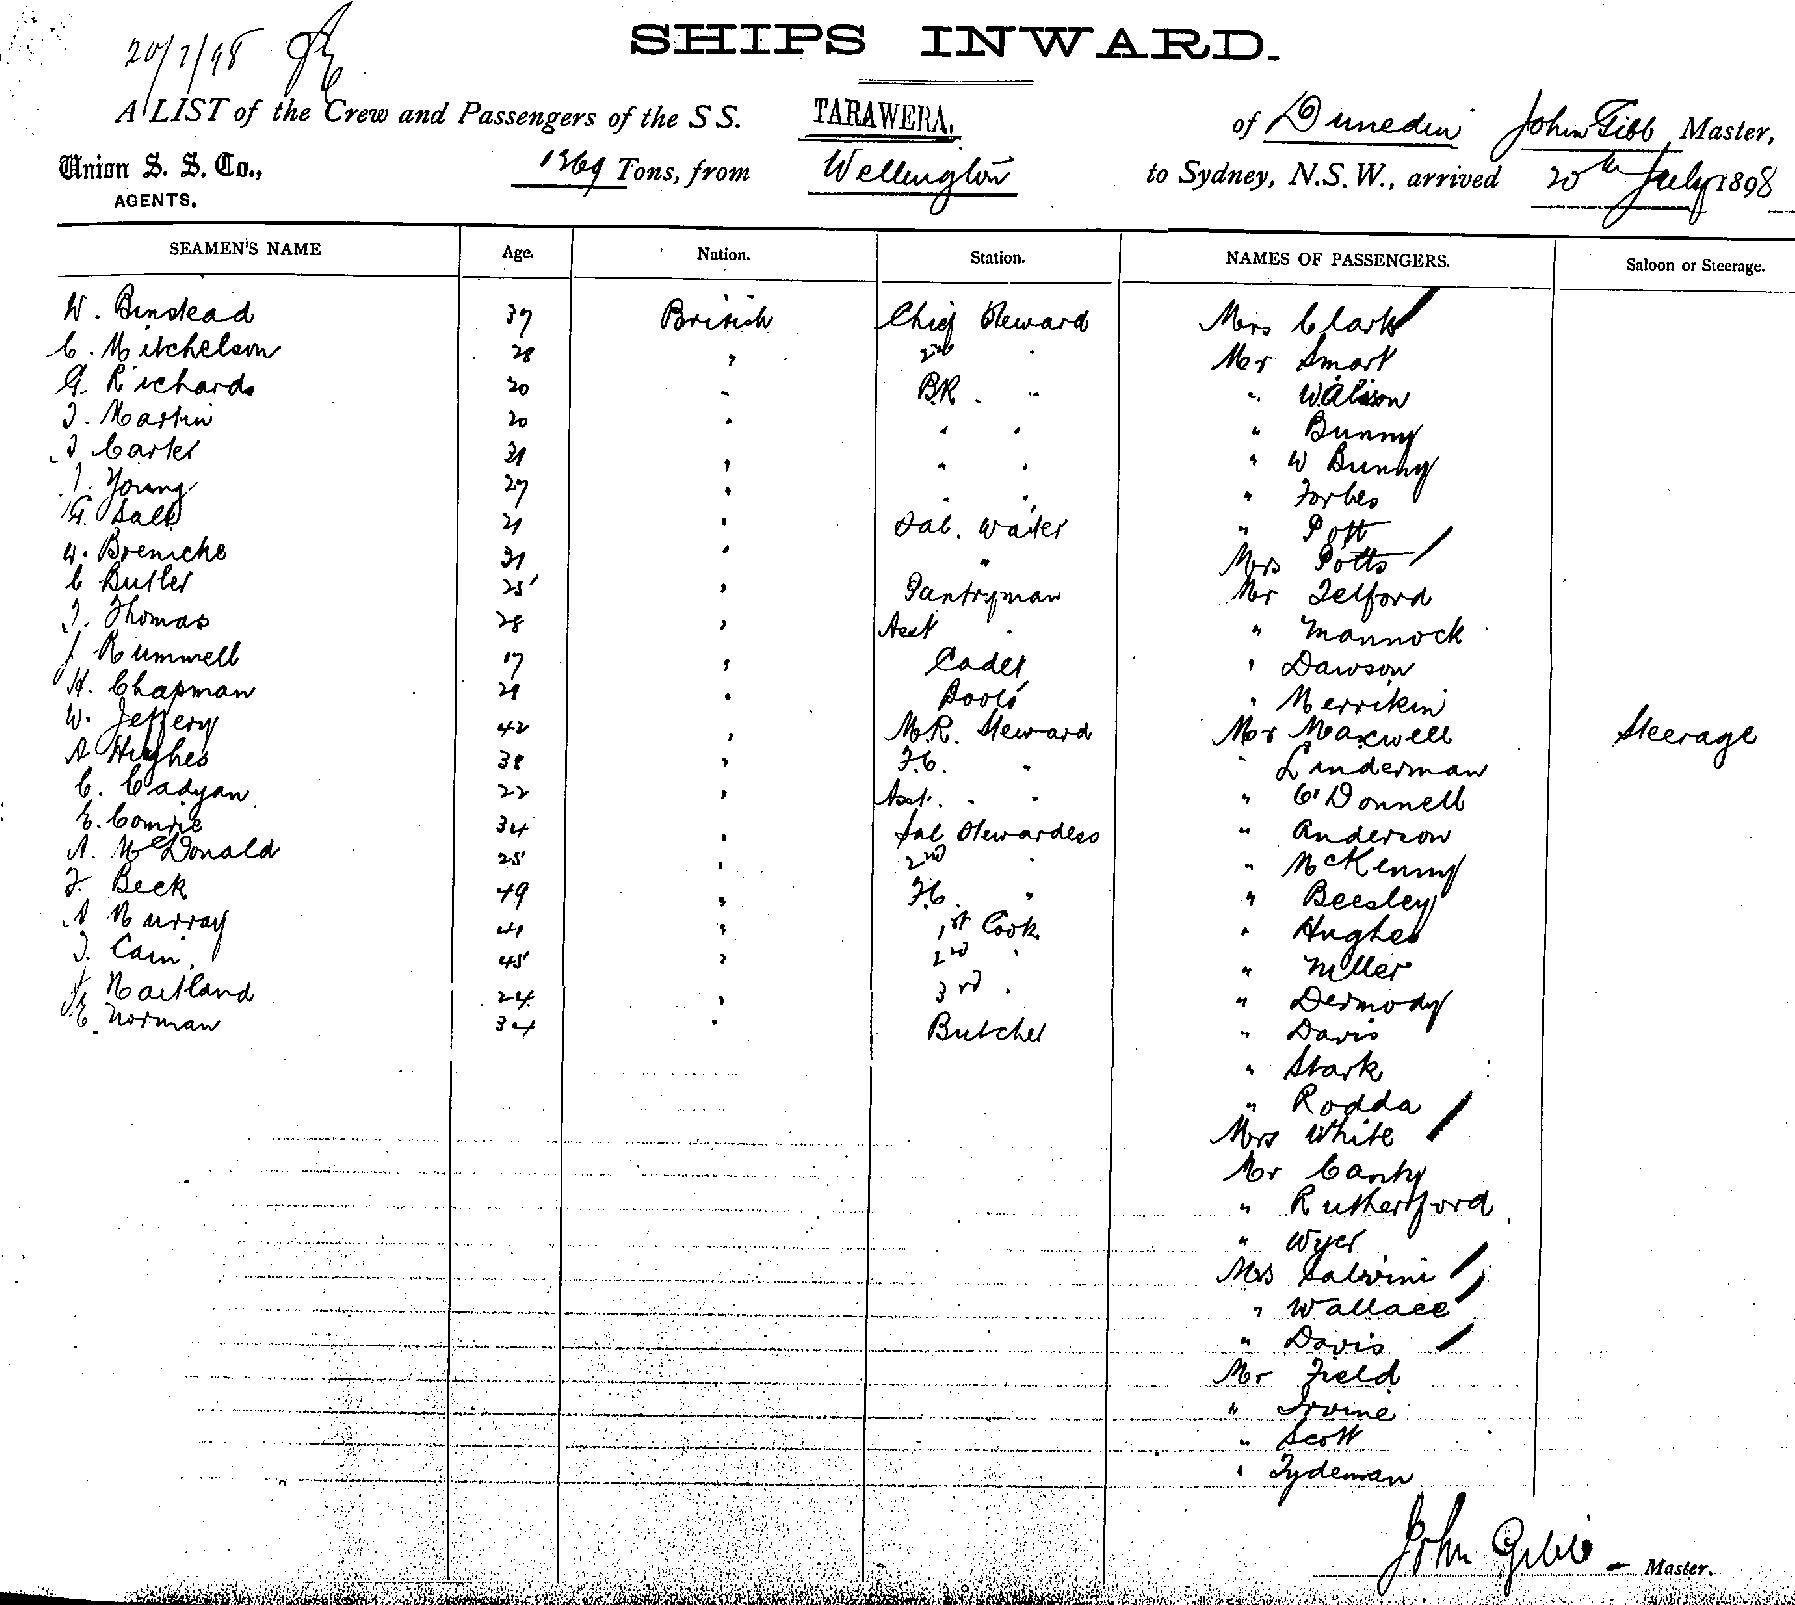 20/7/98
SHIPS INWARD.
A LIST of the Crew and Passengers of the S S. TARAWERA, of Dunedin John Gibb Master,
Union S. S. Co., 1269 Tons, from Wellington to Sydney, N.S.W., arrived 20th July 1898
AGENTS.
SEAMEN'S NAME Age. Nation. Station. NAMES OF PASSENGERS. Saloon or Steerage.
W. Binstead 37 British Chief Steward Mrs Clark
C. Mitchelson 28 " 2nd " Mr Smart
G. Richards 20 " B.R. " " Watson
J. Martin 20 " " " " Bunny
J. Carter 31 " " " " W Bunny
J. Young 27 " " " " Forbes
G. Salt 21 " Sal. Waiter " Pott
W. Brenicke 31 " " Mrs Potts
C Butler 25 " Pantryman Mr Telford
J. Thomas 28 " Asst " " Mannock
J Rummell 17 " Cadet " Dawson
H. Chapman 21 " Boots " Merrikin
W. Jeffery 42 " M.R. Steward Mr Maxwell Steerage
A Hughes 38 " F.C. " " Linderman
C. Cadyan 22 " Asst. " " " O'Donnell
E. Comrie 34 " Sal Stewardess " Anderson
A. McDonald 25 " 2nd " " McKenny
F. Beck 49 " F.C. " " Beesley
A Murray 41 " 1st Cook " Hughes
J. Cain 45 " 2nd " " Miller
J. Maitland 24 " 3rd " " Dermody
E. Norman 34 " Butcher " Davis
" Stark
" Rodda
Mrs White
Mr Canty
" Rutherford
" Wyer
Mrs Salvini
" Wallace
" Davis
Mr Field
" Irvine
" Scott
" Tydeman
John Gibb Master.